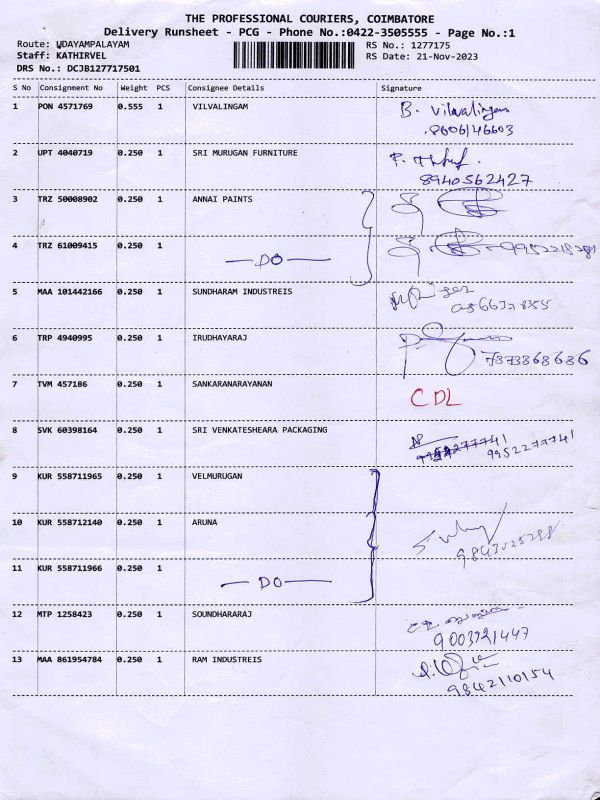 THE PROFESSIONAL COURIERS, COIMBATORE
Delivery Runsheet - PCG - Phone No.:0422-3505555 - Page No.:1
Route: UDAYAMPALAYAM RS No.: 1277175
Staff: KATHIRVEL RS Date: 21-Nov-2023
DRS No.: DCJB127717501
S No Consignment No Weight PCS Consignee Details Signature
1 PON 4571769 0.555 1 VILVALINGAM B. Vilvalingam
8606146603
2 UPT 4040719 0.250 1 SRI MURUGAN FURNITURE
8940562427
3 TRZ 50008902 0.250 1 ANNAI PAINTS
4 TRZ 61009415 0.250 1
DO 9952218281
5 MAA 101442166 0.250 1 SUNDHARAM INDUSTREIS
6 TRP 4940995 0.250 1 IRUDHAYARAJ
7373868686
7 TVM 457186 0.250 1 SANKARANARAYANAN CDL
8 SVK 60398164 0.250 1 SRI VENKATESHEARA PACKAGING
9952277741
9 KUR 558711965 0.250 1 VELMURUGAN
10 KUR 558712140 0.250 1 ARUNA
9843025298
11 KUR 558711966 0.250 1
DO
12 MTP 1258423 0.250 1 SOUNDHARARAJ
9003921447
13 MAA 861954784 0.250 1 RAM INDUSTREIS
9842110154